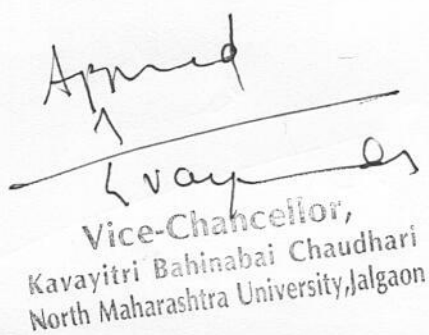 Approved
Vice-Chancellor,
Kavayitri Bahinabai Chaudhari
North Maharashtra University,Jalgaon